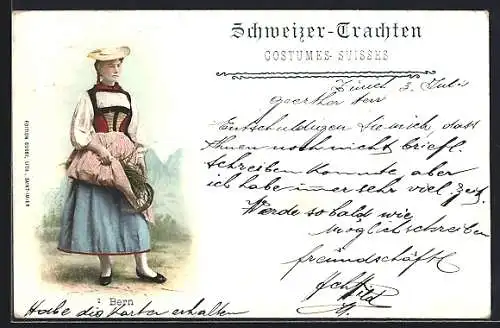 Schweizer-Trachten
COSTUMES-SUISSES
Zürich 3. Juli
geerther Herr
Entschuldigen Sie mich, dass
Ihnen noch nicht briefl.
schreiben konnte, aber
ich habe immer sehr viel
Werde sobald wie
möglich schreiben
freundschaftl
Bern
Habe die Karten erhalten